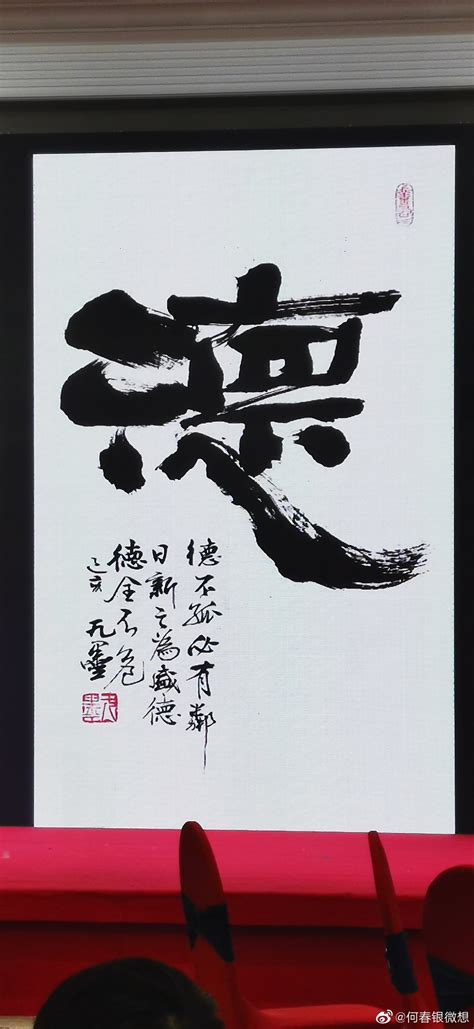 德
德不孤必有鄰
日新之為盛德
德全不危
乙亥 元墨
@何春银微想